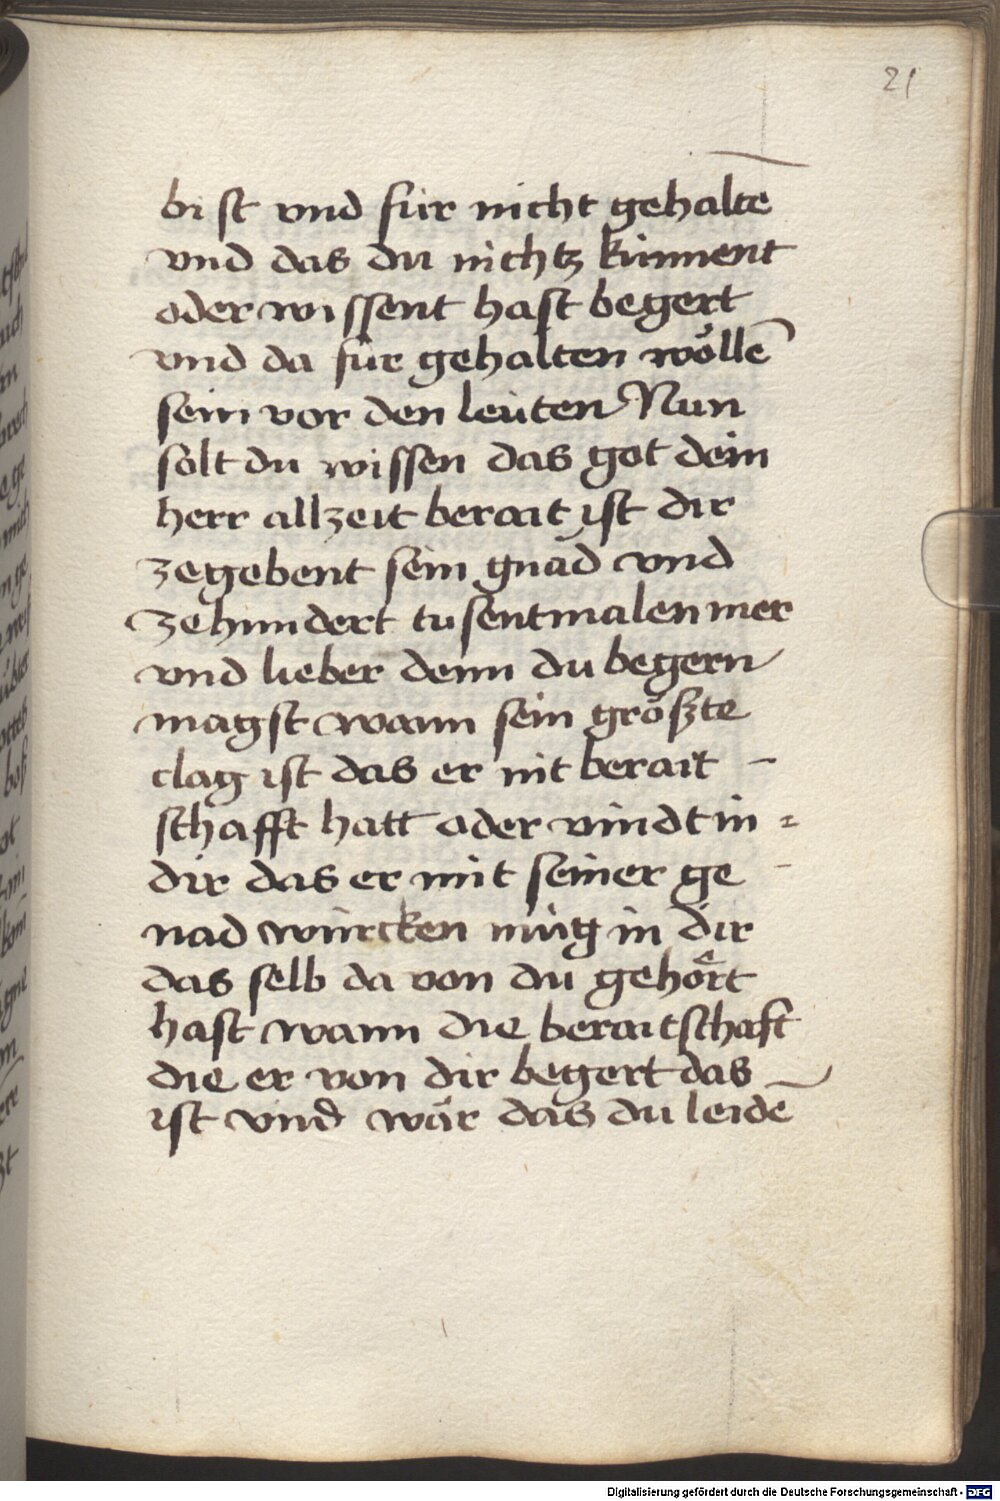 21
bist vnd für nicht gehaltē
vnd das du nichtz künnent
oder wissent hast begert
vnd da für gehalten wöllē
sein vor den leüten Nun
solt du wissen das got dein
herr allzeit berait ist dir
zegebent sein gnad vnd
zehundert tusentmalen mer
vnd lieber denn du begern
magst wann sein größte
clag ist das er nit berait -
schafft hatt oder vindt in =
dir das er mit seiner ge -
nad würcken müg in dir
das selb da von du gehört
hast wann die beraitschaft
die er von dir begert das
ist vnd wär das du leidē
Digitalisierung gefördert durch die Deutsche Forschungsgemeinschaft - DFG